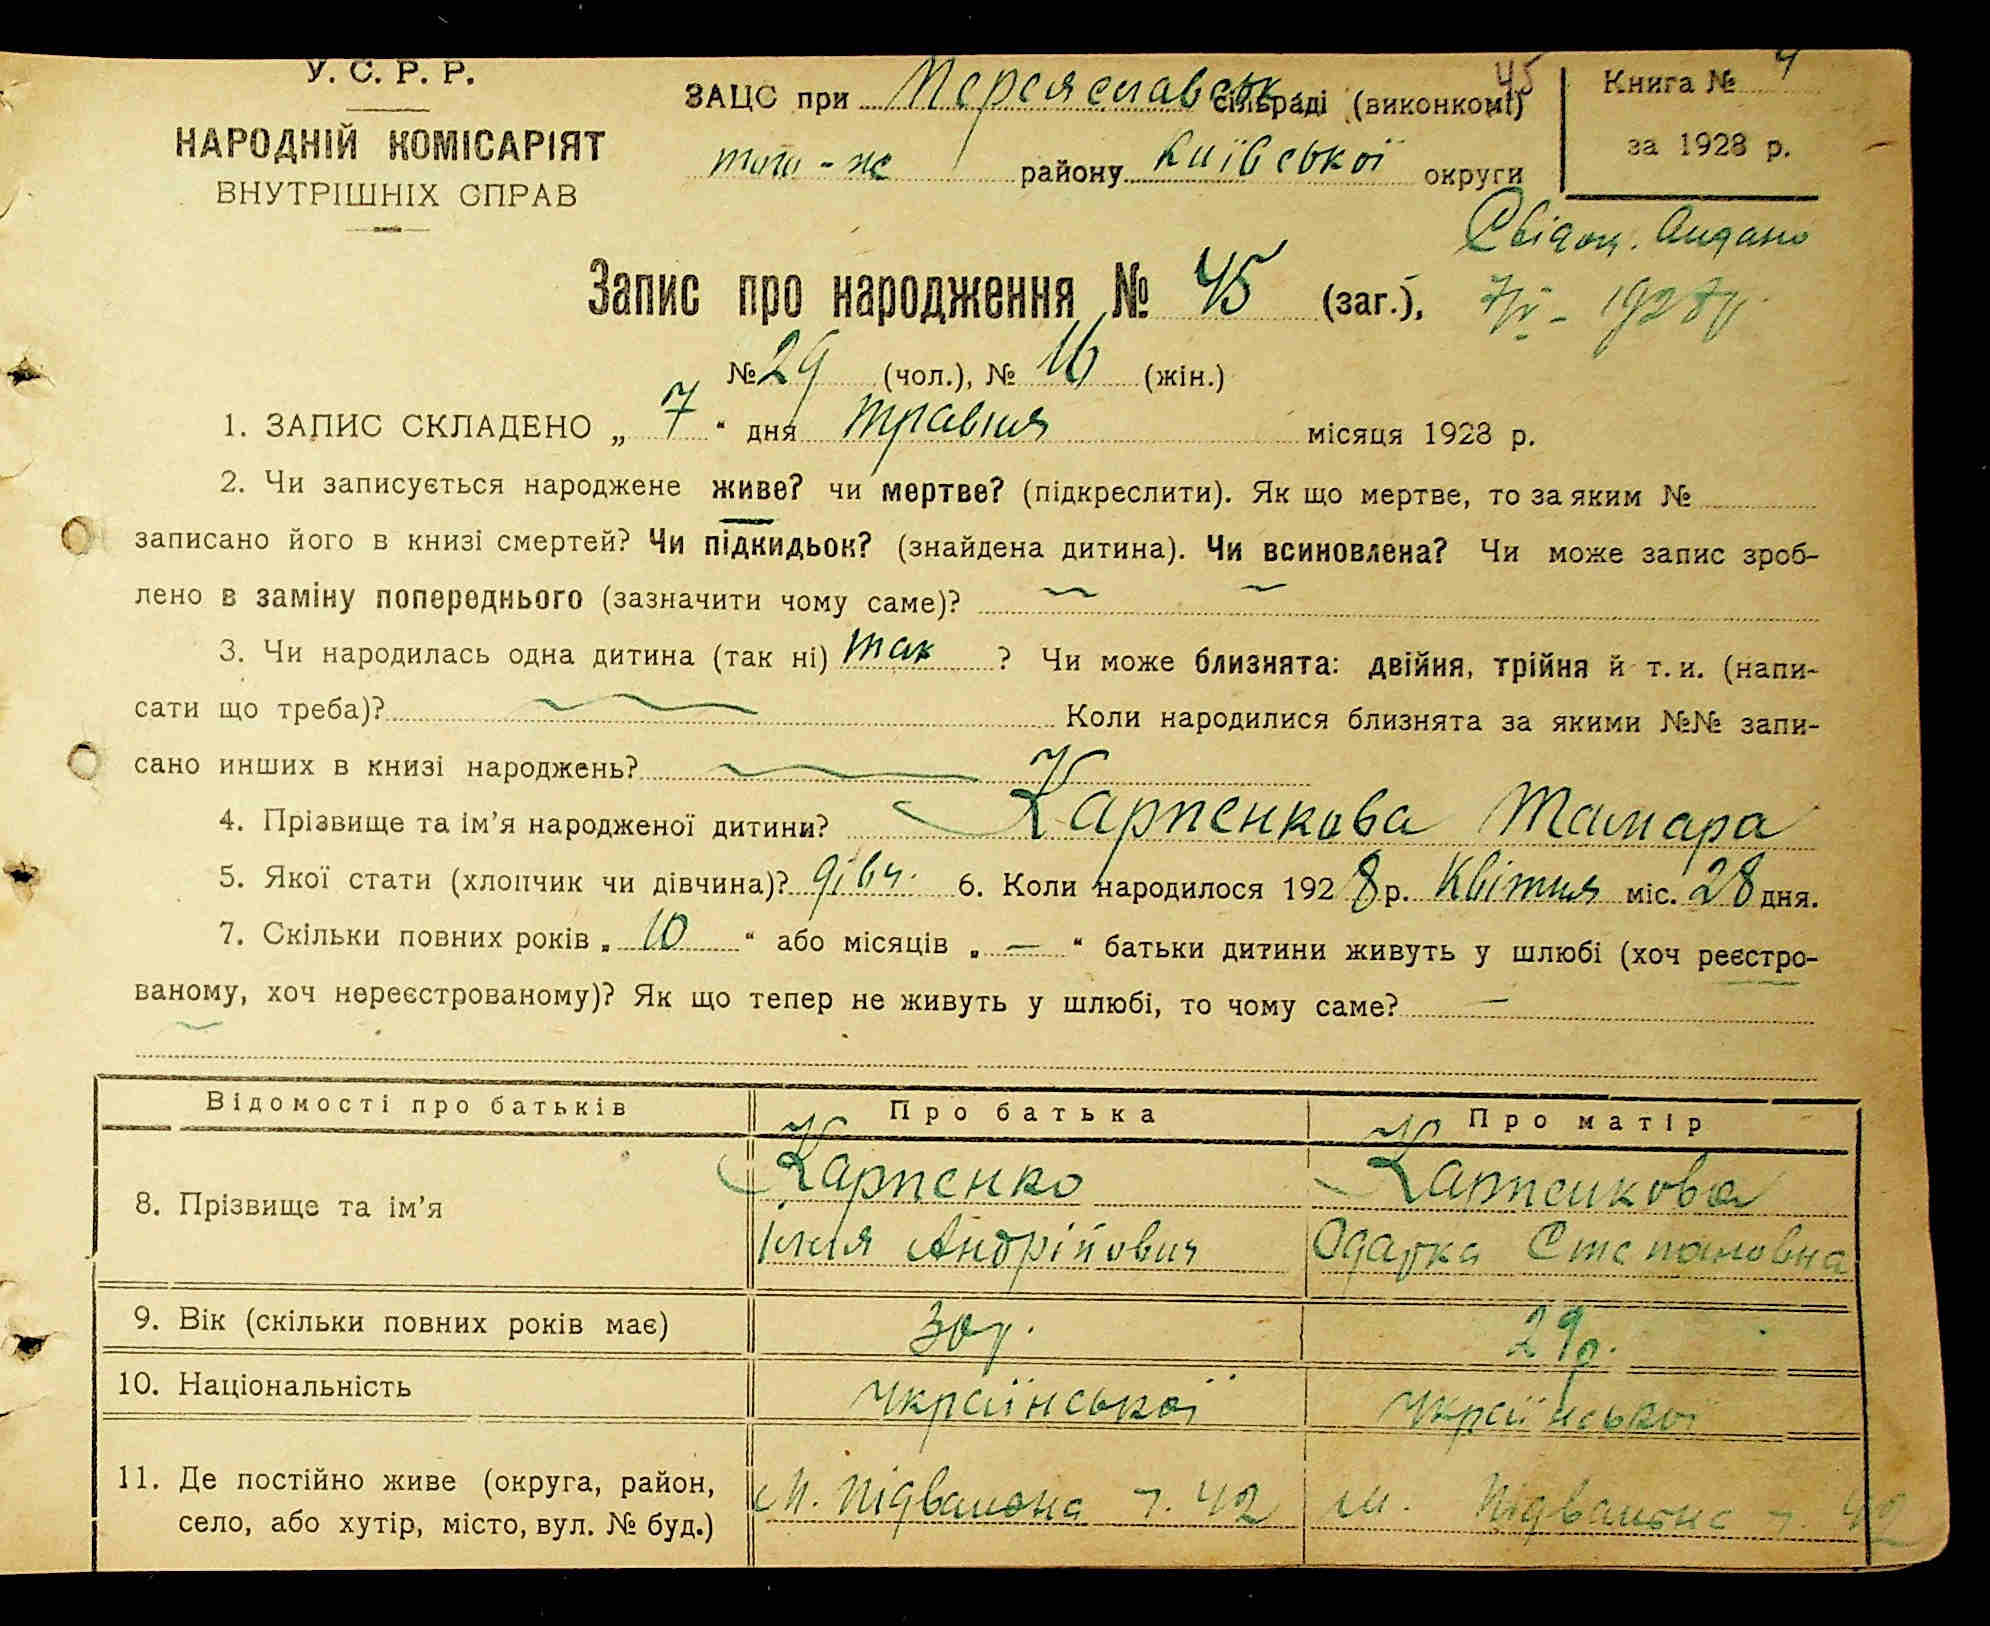 У. С. Р. Р.
НАРОДНІЙ КОМІСАРІЯТ
ВНУТРІШНІХ СПРАВ
ЗАЦС при Переяславськ. сільраді (виконкомі)
того-же району Київської округи
45
Книга № 4
за 1928 р.
Свідоц. видано
7/V - 1928 р.
Запис про народження № 45 (заг.),
№ 29 (чол.), № 16 (жін.)
1. ЗАПИС СКЛАДЕНО „ 7 “ дня травня місяця 1928 р.
2. Чи записується народжене живе? чи мертве? (підкреслити). Як що мертве, то за яким №
записано його в книзі смертей? Чи підкидьок? (знайдена дитина). Чи всиновлена? Чи може запис зроб-
лено в заміну попереднього (зазначити чому саме)?
3. Чи народилась одна дитина (так ні) так ? Чи може близнята: двійня, трійня й т. и. (напи-
сати що треба)? Коли народилися близнята за якими №№ запи-
сано инших в книзі народжень?
4. Прізвище та ім’я народженої дитини? Карпенкова Тамара
5. Якої стати (хлопчик чи дівчина)? дівч. 6. Коли народилося 1928 р. Квітня міс. 28 дня.
7. Скільки повних років „ 10 “ або місяців „ — “ батьки дитини живуть у шлюбі (хоч реєстро-
ваному, хоч нереєстрованому)? Як що тепер не живуть у шлюбі, то чому саме? —
Відомості про батьків Про батька Про матір
8. Прізвище та ім’я Карпенко Карпенкова
Ілля Андрійович Одарка Степановна
9. Вік (скільки повних років має) 30 р. 29 р.
10. Національність Української Української
11. Де постійно живе (округа, район,
село, або хутір, місто, вул. № буд.)
м. Підвальна 42 м. Підвальна 42